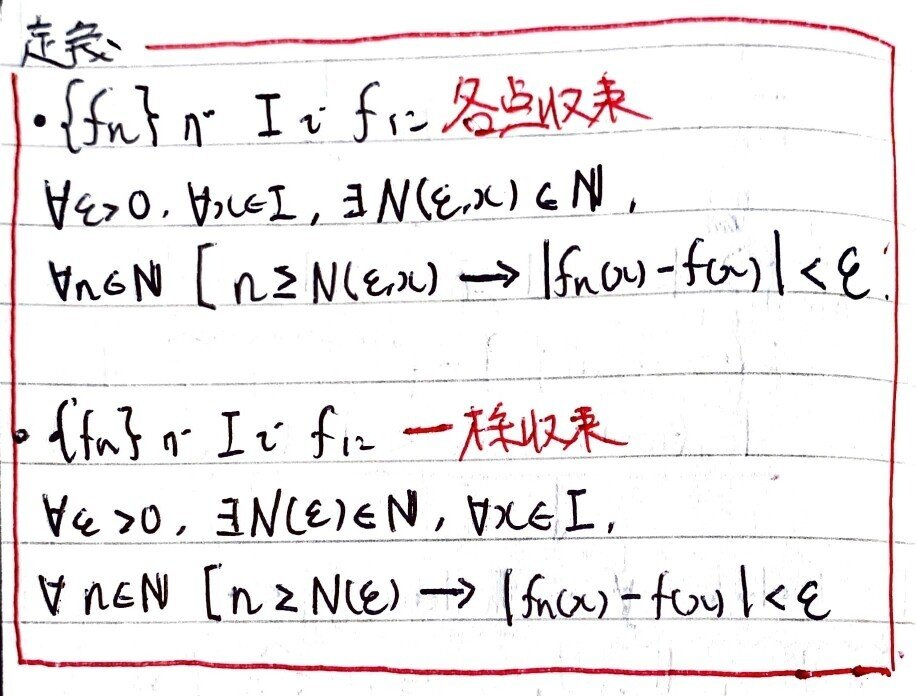 定義
・{fn} が I で f に 各点収束
∀ε>0, ∀x∈I, ∃N(ε,x)∈ℕ,
∀n∈ℕ [n≥N(ε,x) → |fn(x)-f(x)|<ε.
・{fn} が I で f に 一様収束
∀ε>0, ∃N(ε)∈ℕ, ∀x∈I,
∀n∈ℕ [n≥N(ε) → |fn(x)-f(x)|<ε